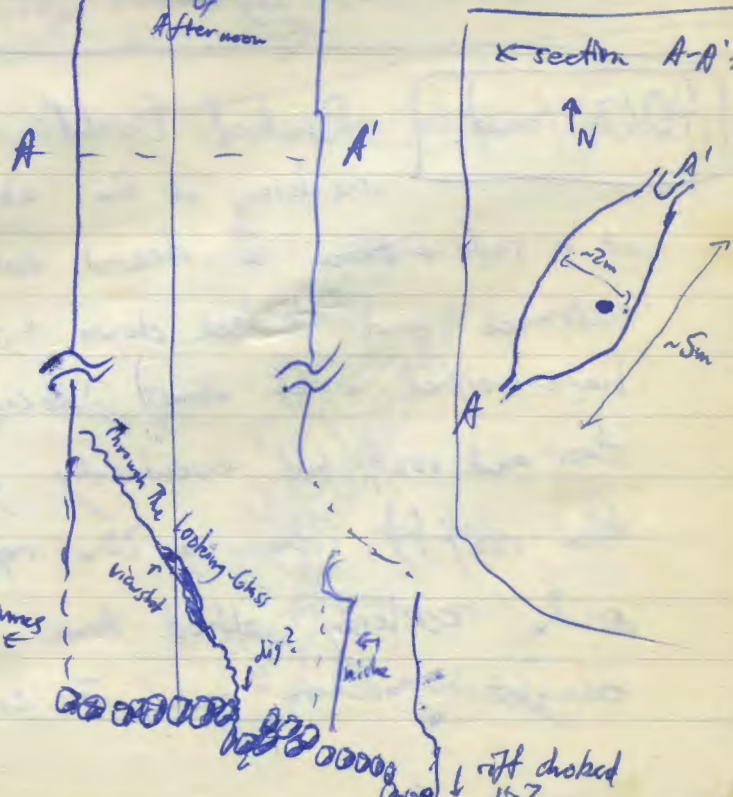 of
Afternoon
A
A'
X-section A-A':
N
A'
~2m
~5m
A
Through The Looking-Glass
viewshot
dig?
niche
rift choked